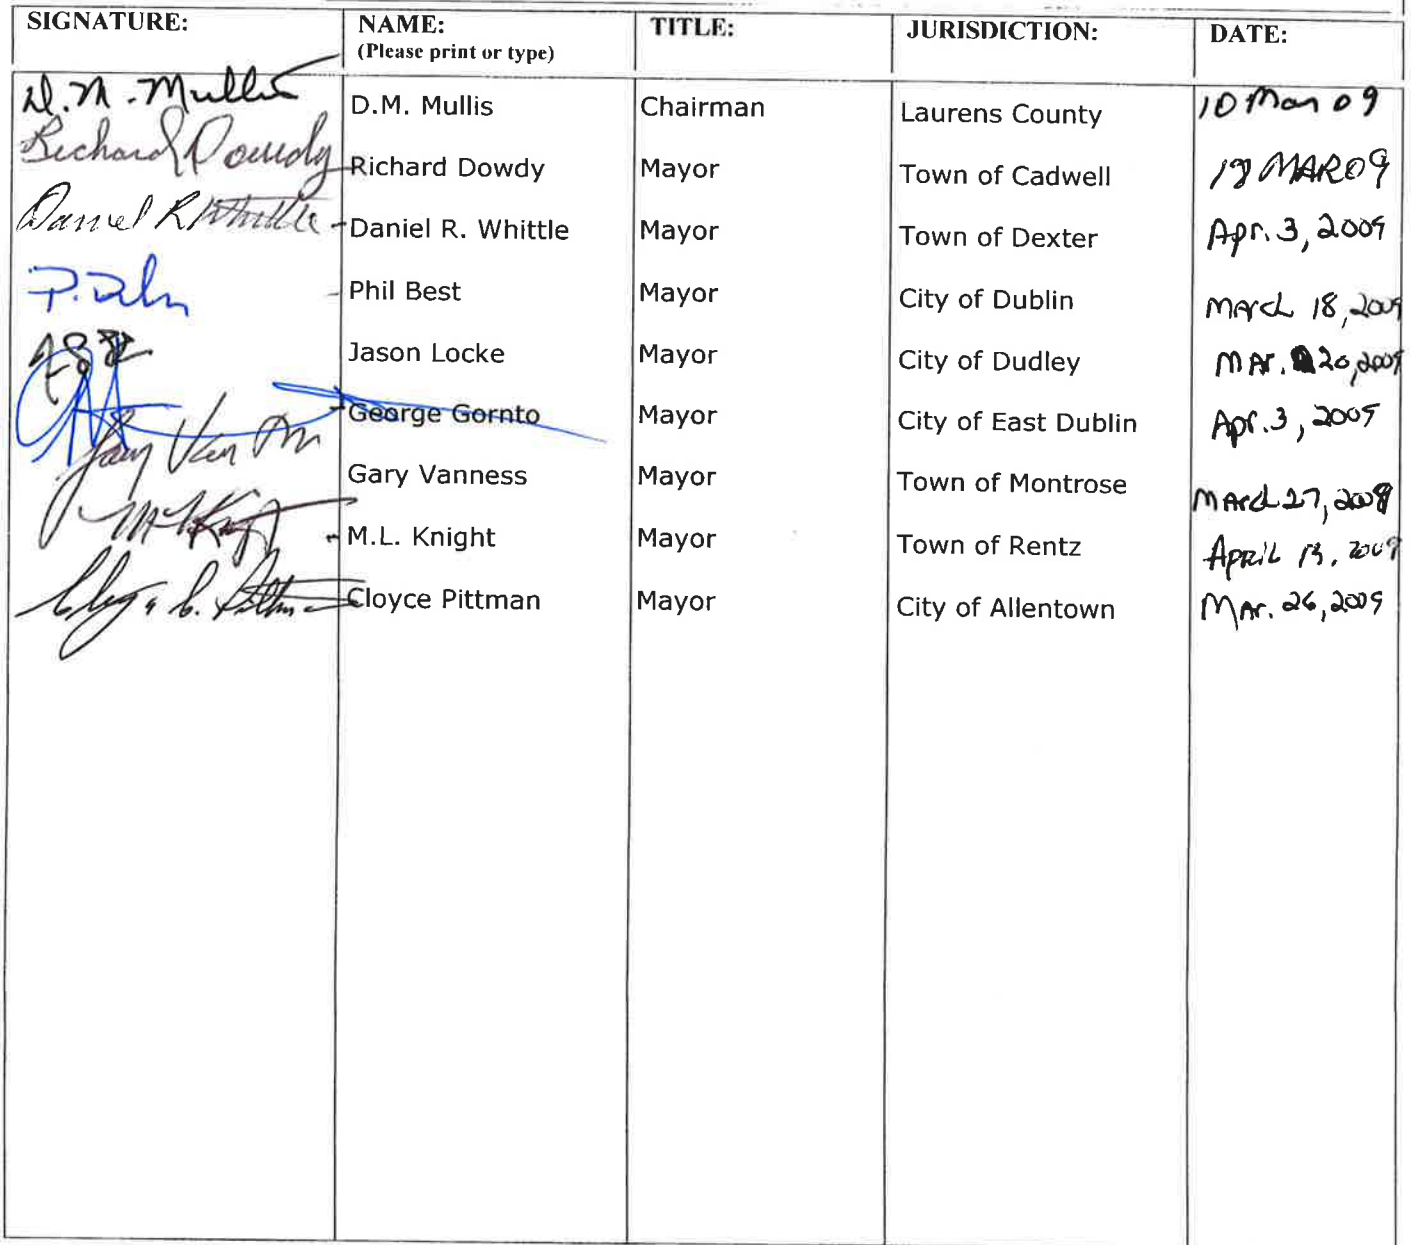 SIGNATURE: NAME: TITLE: JURISDICTION: DATE:
(Please print or type)
D.M. Mullis D.M. Mullis Chairman Laurens County 10 Mar 09
Richard Dowdy Richard Dowdy Mayor Town of Cadwell MAR09
Daniel R Whittle Daniel R. Whittle Mayor Town of Dexter Apr. 3, 2009
Phil Best Mayor City of Dublin March 18, 2009
Jason Locke Mayor City of Dudley Mar. 20, 2009
George Gornto Mayor City of East Dublin Apr. 3, 2009
Gary Vanness Mayor Town of Montrose March 27, 2009
M.L. Knight Mayor Town of Rentz April 13, 2009
Cloyce Pittman Mayor City of Allentown Mar. 26, 2009